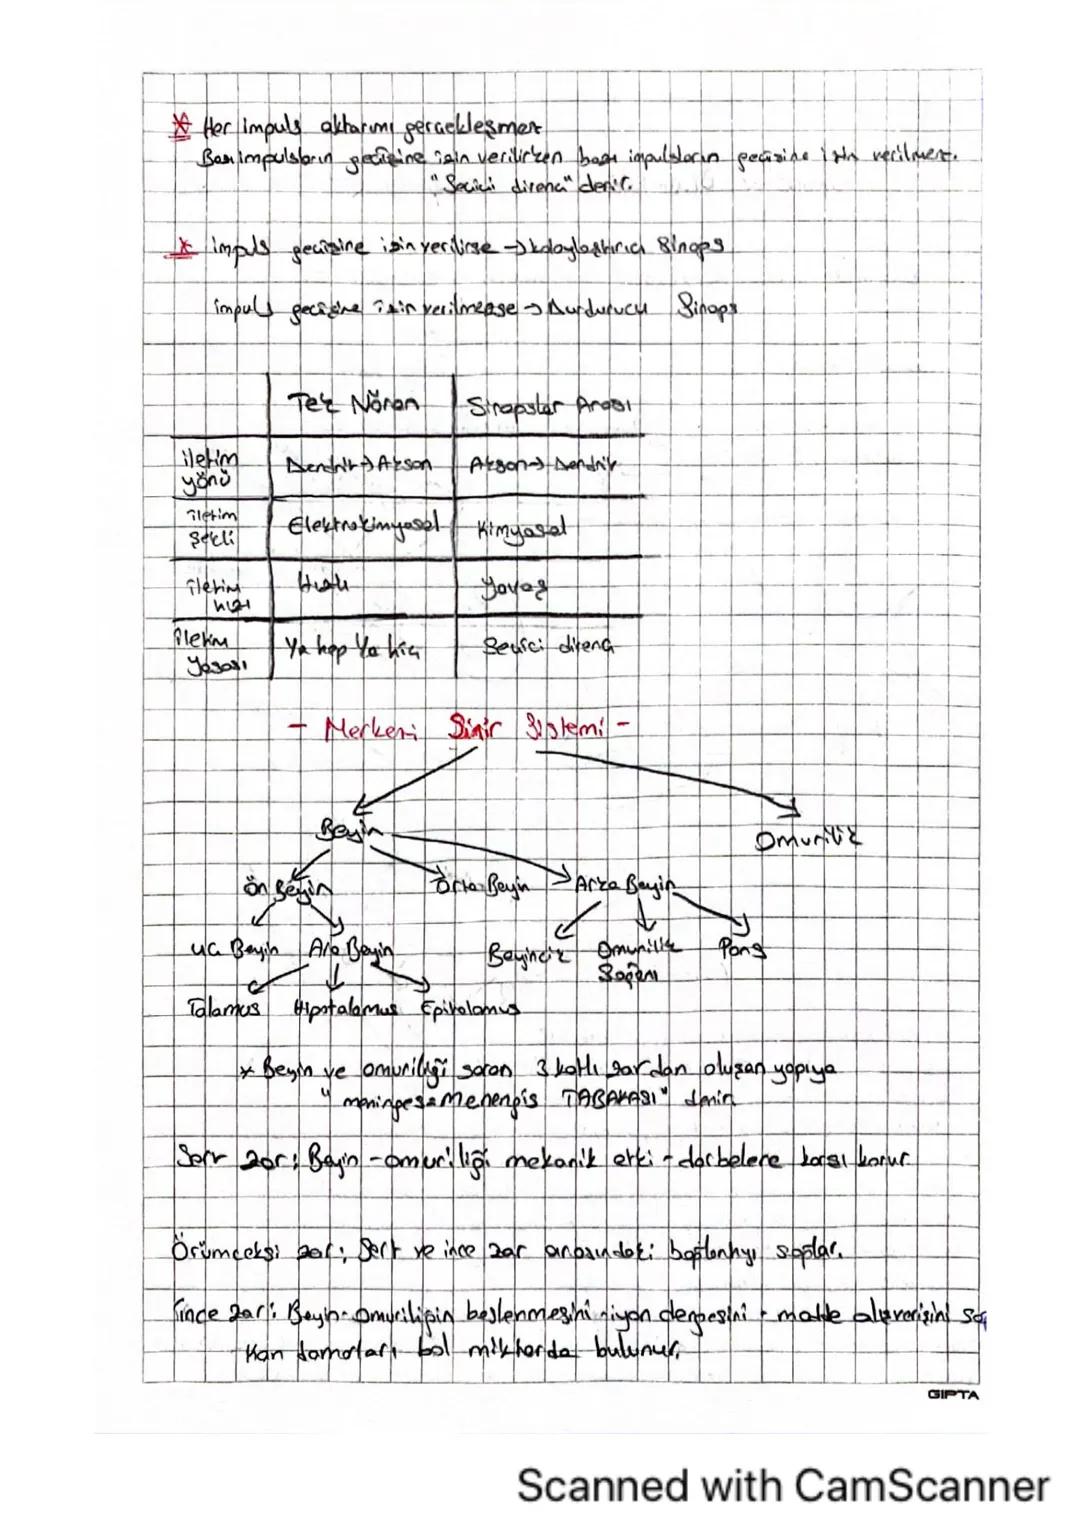 * Her impuls aktarımı gerçekleşmez.
Bazı impulsların geçişine izin verilirken bazı impulsların geçişine izin verilmez.
"Seçici direnç" denir.
* impuls geçişine izin verilirse → kolaylaştırıcı Sinaps
impuls geçişine izin verilmezse → Durdurucu Sinaps
Tek Nöron Sinapslar Arası
iletim yönü Dendrit → Akson Akson → Dendrit
iletim şekli Elektrokimyasal Kimyasal
iletim hızı Hızlı Yavaş
iletim yasası Ya hep Ya hiç Seçici direnç
- Merkezi Sinir Sistemi -
Beyin Omurilik
Ön Beyin Orta Beyin Arka Beyin
Uç Beyin Ara Beyin Beyincik Omurilik Soğanı Pons
Talamus Hipotalamus Epitalamus
* Beyin ve omuriliği saran 3 katlı zardan oluşan yapıya
"meninges=Menengis TABAKASI" denir.
Sert zar: Beyin - omuriliği mekanik etki - darbelere karşı korur.
Örümceksi zar: Sert ve ince zar arasındaki bağlantıyı sağlar.
İnce zar: Beyin-Omuriliğin beslenmesini - iyon dengesini - madde alışverişini
Kan damarları bol miktarda bulunur.
GIPTA
Scanned with CamScanner